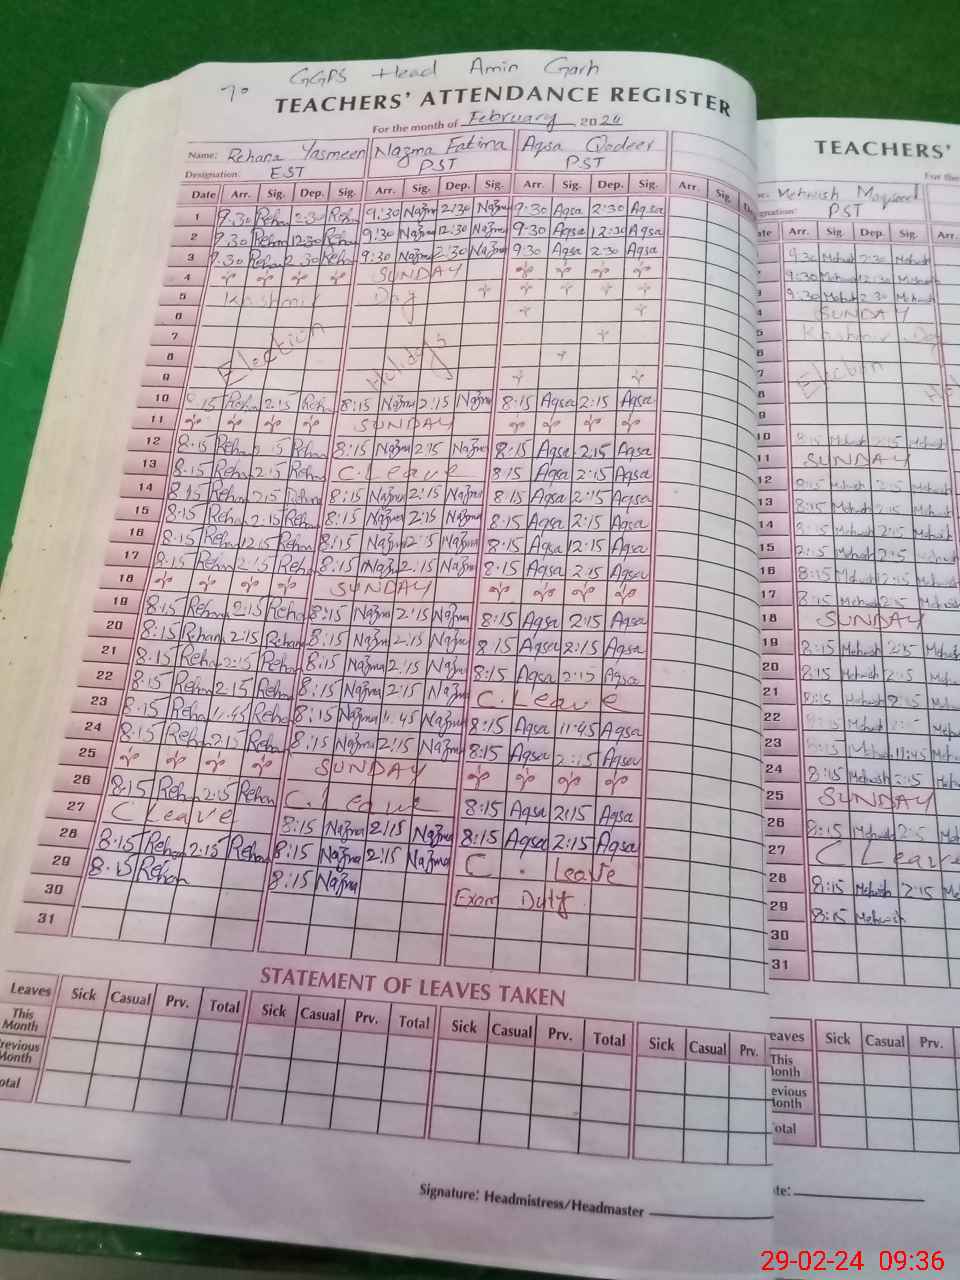 70
GGPS Head Amin Garh
TEACHERS' ATTENDANCE REGISTER
For the month of February 2024
Name: Rehana Yasmeen Nazma Fatima Aqsa Qadeer
Designation: EST PST PST
Date Arr. Sig. Dep. Sig. Arr. Sig. Dep. Sig. Arr. Sig. Dep. Sig. Arr. Sig.
1 9.30 Rehan 2:30 Rehn 9:30 Nazma 2:30 Nazma 9:30 Aqsa 2:30 Aqsa
2 9.30 Rehn 12:30 Rehn 9:30 Nazma 12:30 Nazma 9:30 Aqsa 12:30 Aqsa
3 9.30 Rehan 2:30 Rehan 9:30 Nazma 2:30 Nazma 9:30 Aqsa 2:30 Aqsa
4 SUNDAY
5 Kashmir Day
6
7 Election Holidays
8
9
10 8:15 Rehn 2:15 Rehn 8:15 Nazma 2:15 Nazma 8:15 Aqsa 2:15 Aqsa
11 SUNDAY
12 8:15 Rehn 2:15 Rehn 8:15 Nazma 2:15 Nazma 8:15 Aqsa 2:15 Aqsa
13 8:15 Rehn 2:15 Rehn C. Leave 8:15 Aqsa 2:15 Aqsa
14 8:15 Rehn 2:15 Rehan 8:15 Nazma 2:15 Nazma 8:15 Aqsa 2:15 Aqsa
15 8:15 Rehn 2:15 Rehn 8:15 Nazma 2:15 Nazma 8:15 Aqsa 2:15 Aqsa
16 8.15 Rehn 12:15 Rehn 8:15 Nazma 12:15 Nazma 8:15 Aqsa 12:15 Aqsa
17 8:15 Rehn 2:15 Rehn 8:15 Nazma 2:15 Nazma 8:15 Aqsa 2:15 Aqsa
18 SUNDAY
19 8:15 Rehn 2:15 Rehan 8:15 Nazma 2:15 Nazma 8:15 Aqsa 2:15 Aqsa
20 8:15 Rehan 2:15 Rehan 8:15 Nazma 2:15 Nazma 8:15 Aqsa 2:15 Aqsa
21 8:15 Rehn 2:15 Rehan 8:15 Nazma 2:15 Nazma 8:15 Aqsa 2:15 Aqsa
22 8:15 Rehn 2:15 Rehn 8:15 Nazma 2:15 Nazma C. Leave
23 8:15 Rehn 11:45 Rehn 8:15 Nazma 11:45 Nazma 8:15 Aqsa 11:45 Aqsa
24 8:15 Rehan 2:15 Rehan 8:15 Nazma 2:15 Nazma 8:15 Aqsa 2:15 Aqsa
25 SUNDAY
26 8:15 Rehn 2:15 Rehan C. Leave 8:15 Aqsa 2:15 Aqsa
27 C Leave 8:15 Nazma 2:15 Nazma 8:15 Aqsa 2:15 Aqsa
28 8:15 Rehan 2:15 Rehan 8:15 Nazma 2:15 Nazma C. Leave
29 8:15 Rehan 8:15 Nazma Exam Duty
30
31
STATEMENT OF LEAVES TAKEN
Leaves Sick Casual Prv. Total Sick Casual Prv. Total Sick Casual Prv. Total Sick Casual Prv.
This Month
Previous Month
Total
Signature: Headmistress/Headmaster
TEACHERS'
For the
Mehwish Maqsood
PST
Arr. Sig. Dep. Sig. Arr.
9:30 Mehwish 2:30 Mehwish
9:30 Mehwish 12:30 Mehwish
9:30 Mehwish 2:30 Mehwish
SUNDAY
Kashmir Day
Election
10 8:15 Mehwish 2:15 Mehwish
11 SUNDAY
12 8:15 Mehwish 2:15 Mehwish
13 8:15 Mehwish 2:15 Mehwish
14 8:15 Mehwish 2:15 Mehwish
15 2:15 Mehwish 2:15
16 8:15 Mehwish 12:15 Mehwish
17 8:15 Mehwish 2:15 Mehwish
18 SUNDAY
19 8:15 Mehwish 2:15 Mehwish
20 8:15 Mehwish 2:15
21 8:15 Mehwish 2:15
22 8:15 Mehwish 2:15
23 8:15 Mehwish 11:45
24 8:15 Mehwish 2:15
25 SUNDAY
26 8:15 Mehwish 2:15
27 C Leave
28 8:15 Mehwish 2:15
29 8:15 Mehwish
30
31
Sick Casual Prv.
This
29-02-24 09:36